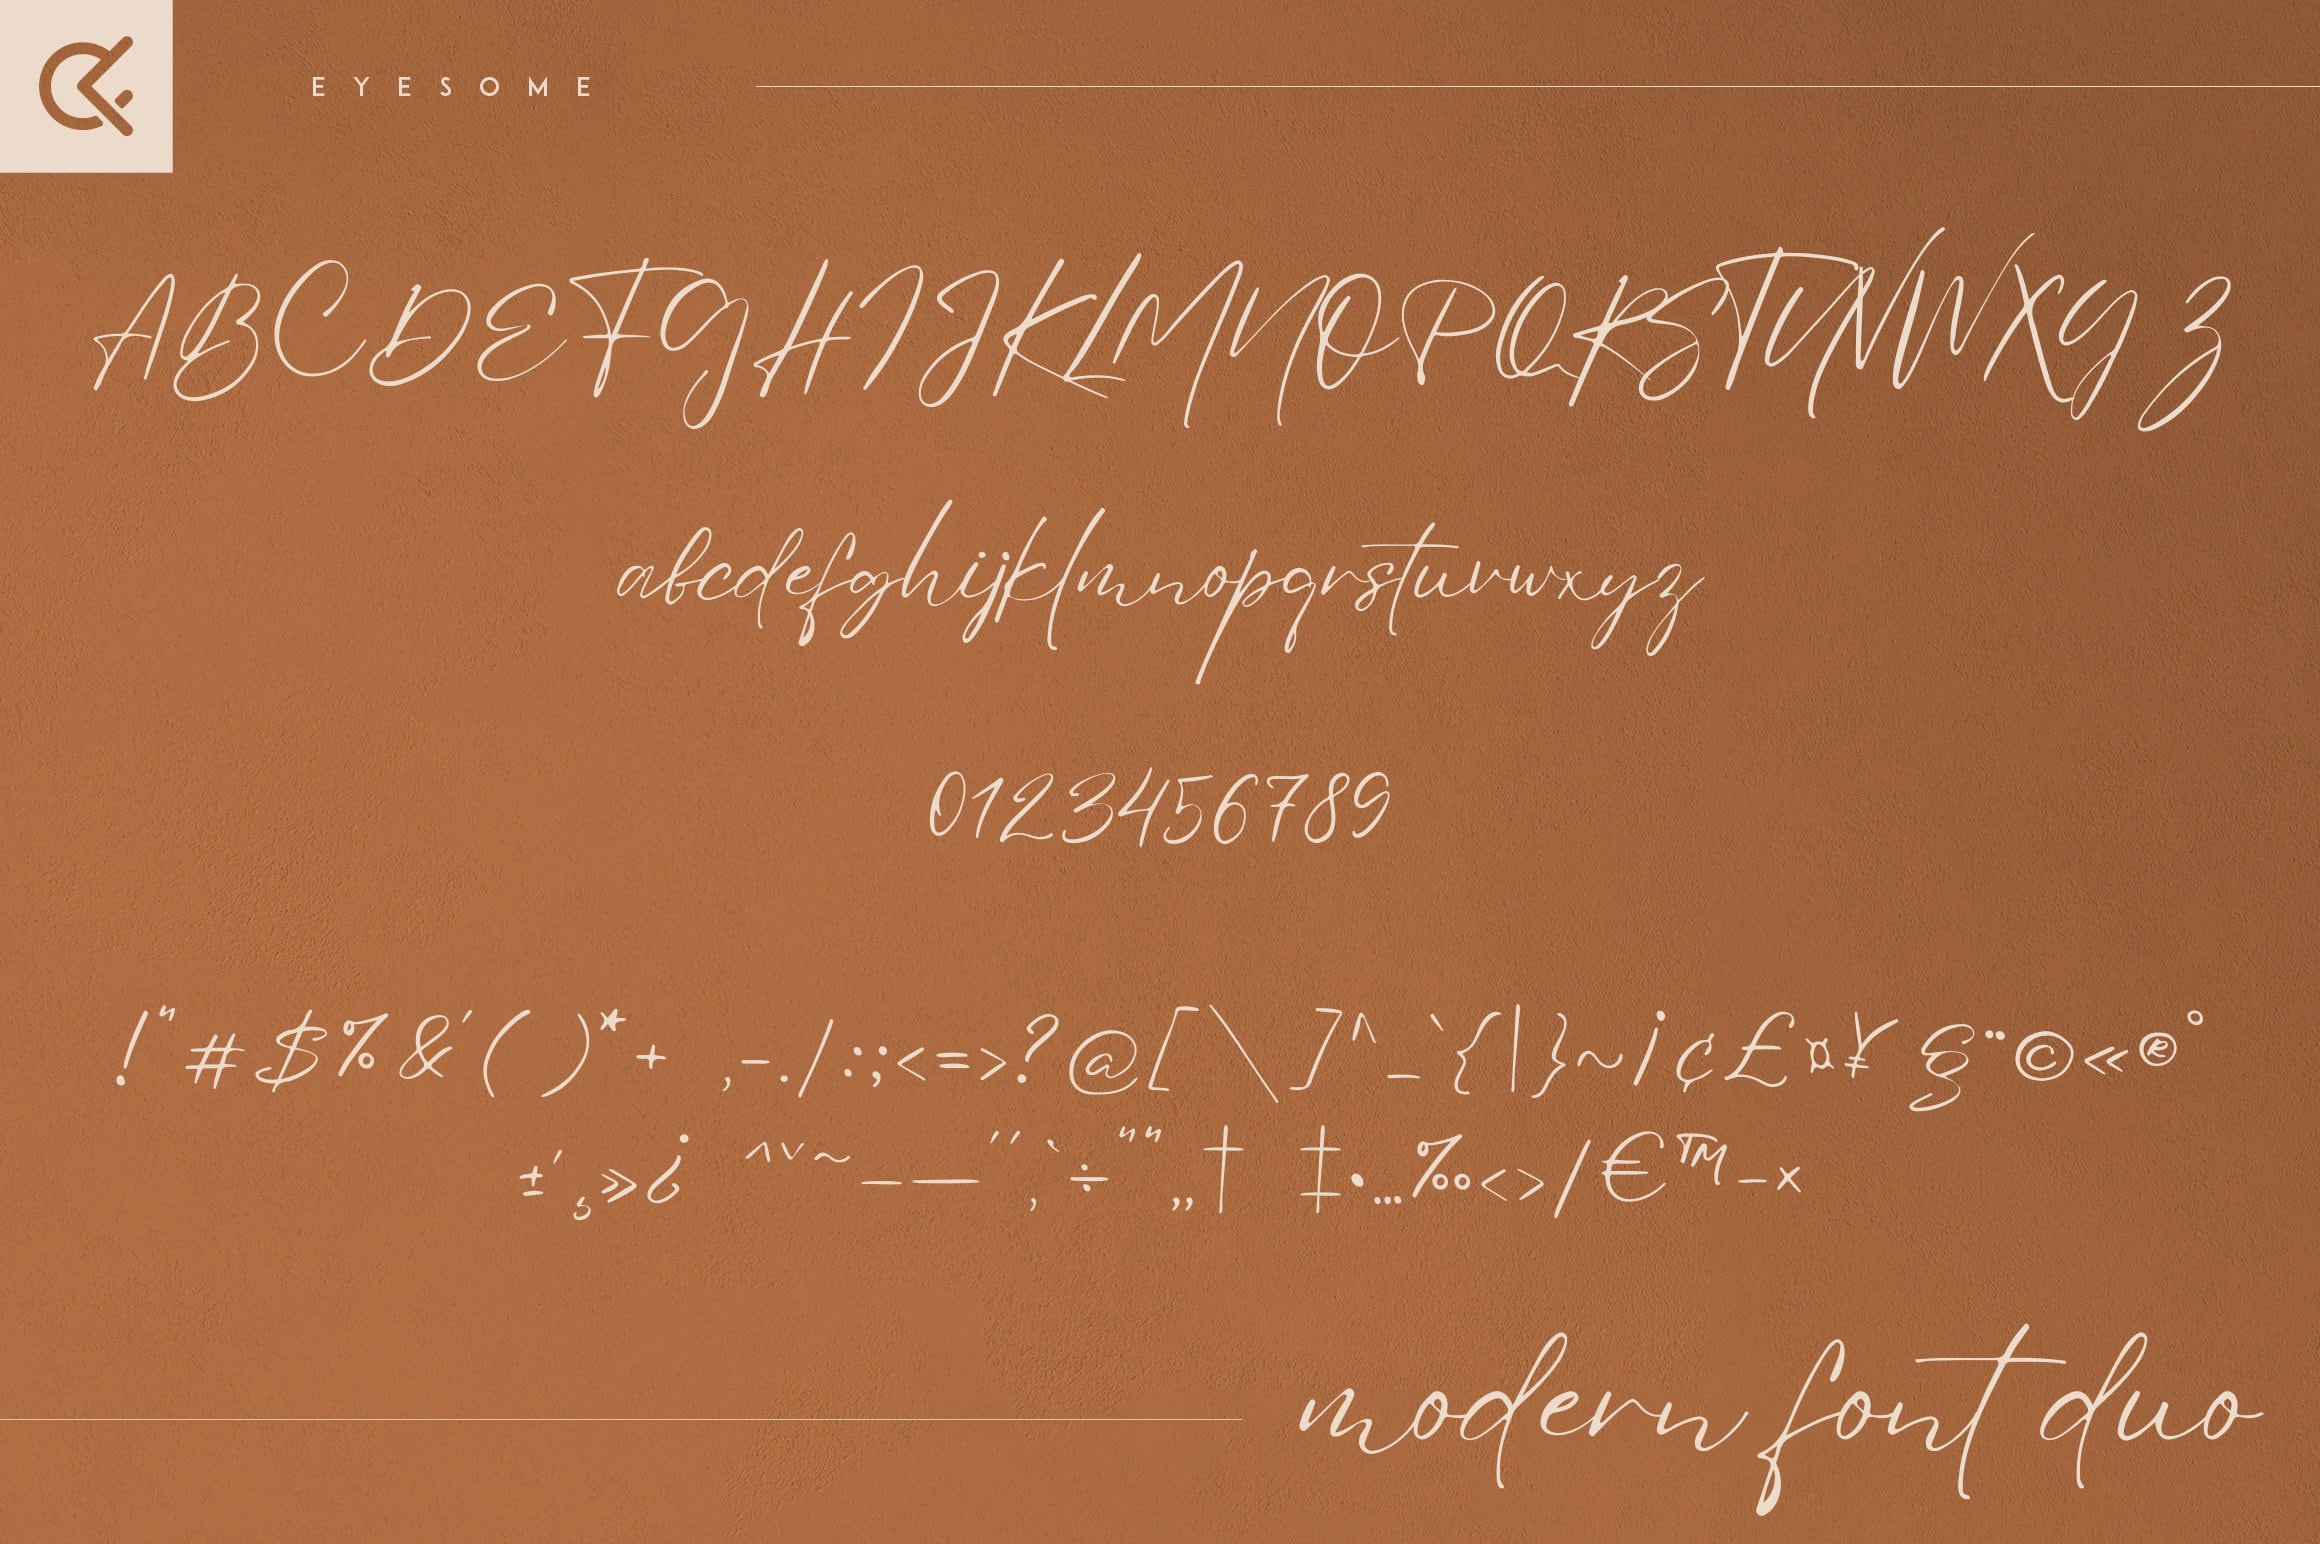 EYESOME
ABCDEFGHIJKLMNOPQRSTUVWXYZ
abcdefghijklmnopqrstuvwxyz
0123456789
!"#$%&'( )*+ ,-./:;<=>?@[\]^_`{|}~¡¢£¤¥ §¨©«®°
±´¸»¿ ˆˇ˜–—‘’‚÷“”„† ‡•…‰‹›/€™−×
modern font duo